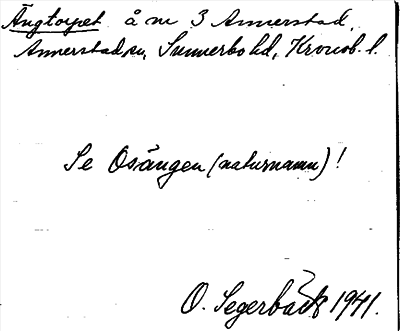 Ängtorpet å nr 3 Annerstad,
Annerstad, sn, Sunnerbo hd, Kronob. l.
Se Osängen (naturnamn)!
O. Segerbäck 1941.